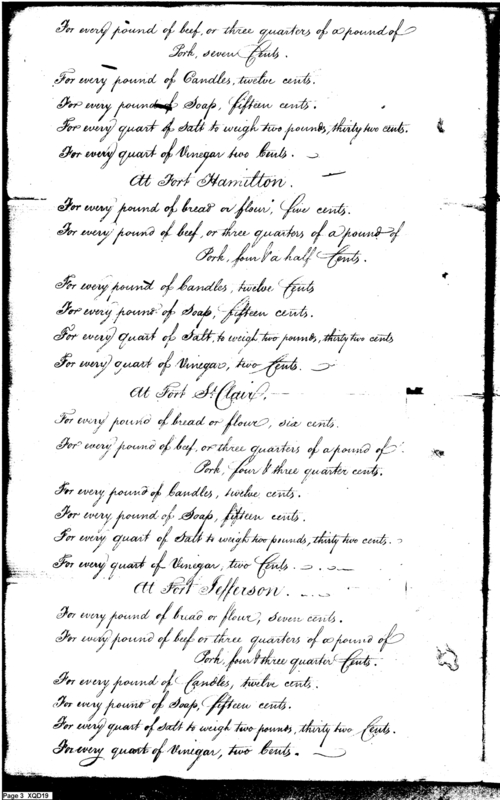 For every pound of beef, or three quarters of a pound of
Pork, seven Cents.
For every pound of Candles, twelve cents.
For every pound of Soap, fifteen cents.
For every quart of Salt to weigh two pounds, thirty two cents.
For every quart of Vinegar two Cents.
At Fort Hamilton.
For every pound of bread or flour, five cents.
For every pound of beef, or three quarters of a pound of
Pork, four & a half Cents.
For every pound of Candles, twelve Cents
For every pound of Soap, fifteen cents.
For every quart of Salt, to weigh two pounds, thirty two cents
For every quart of Vinegar, two Cents.
At Fort St. Clair.
For every pound of bread or flour, six cents.
For every pound of beef, or three quarters of a pound of
Pork, four & three quarter cents.
For every pound of Candles, twelve cents.
For every pound of Soap, fifteen cents.
For every quart of Salt to weigh two pounds, thirty two cents.
For every quart of Vinegar, two Cents.
At Fort Jefferson.
For every pound of bread or flour, seven cents.
For every pound of beef or three quarters of a pound of
Pork, four & three quarter Cents.
For every pound of Candles, twelve cents.
For every pound of Soap, fifteen cents.
For every quart of Salt to weigh two pounds, thirty two Cents.
For every quart of Vinegar, two Cents.
Page 3 XQD19